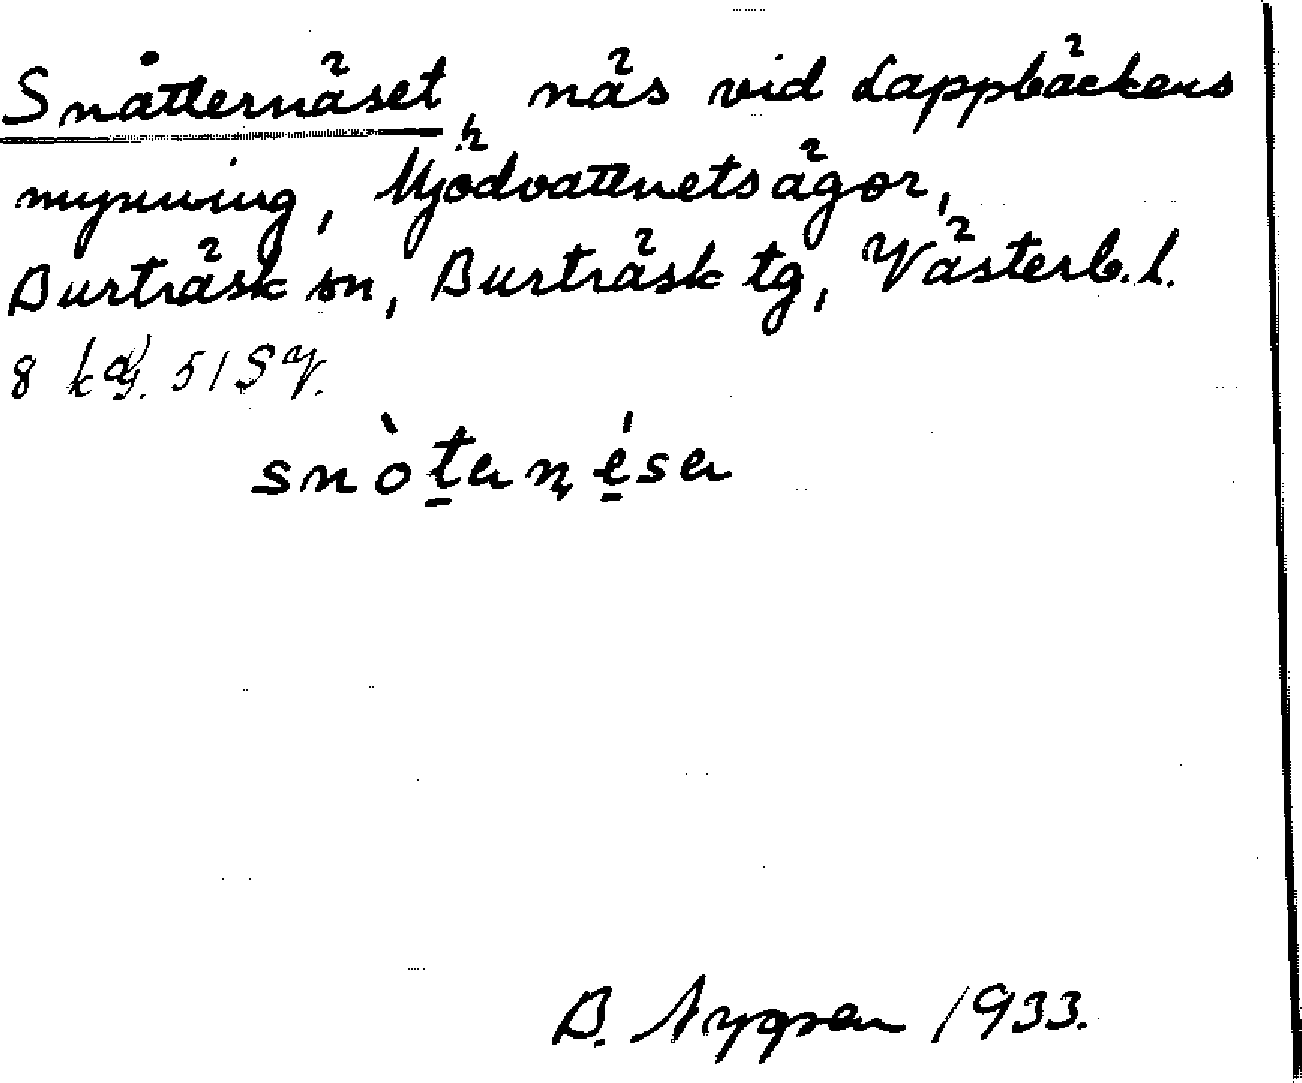 Snåtternäset, näs vid Lappbäckens
mynning, Mjödvattnets ägor,
Burträsk sn, Burträsk tg, Västerb. l.
8 kg. 51 SV.
snòtanésa
B. Nygren 1933.